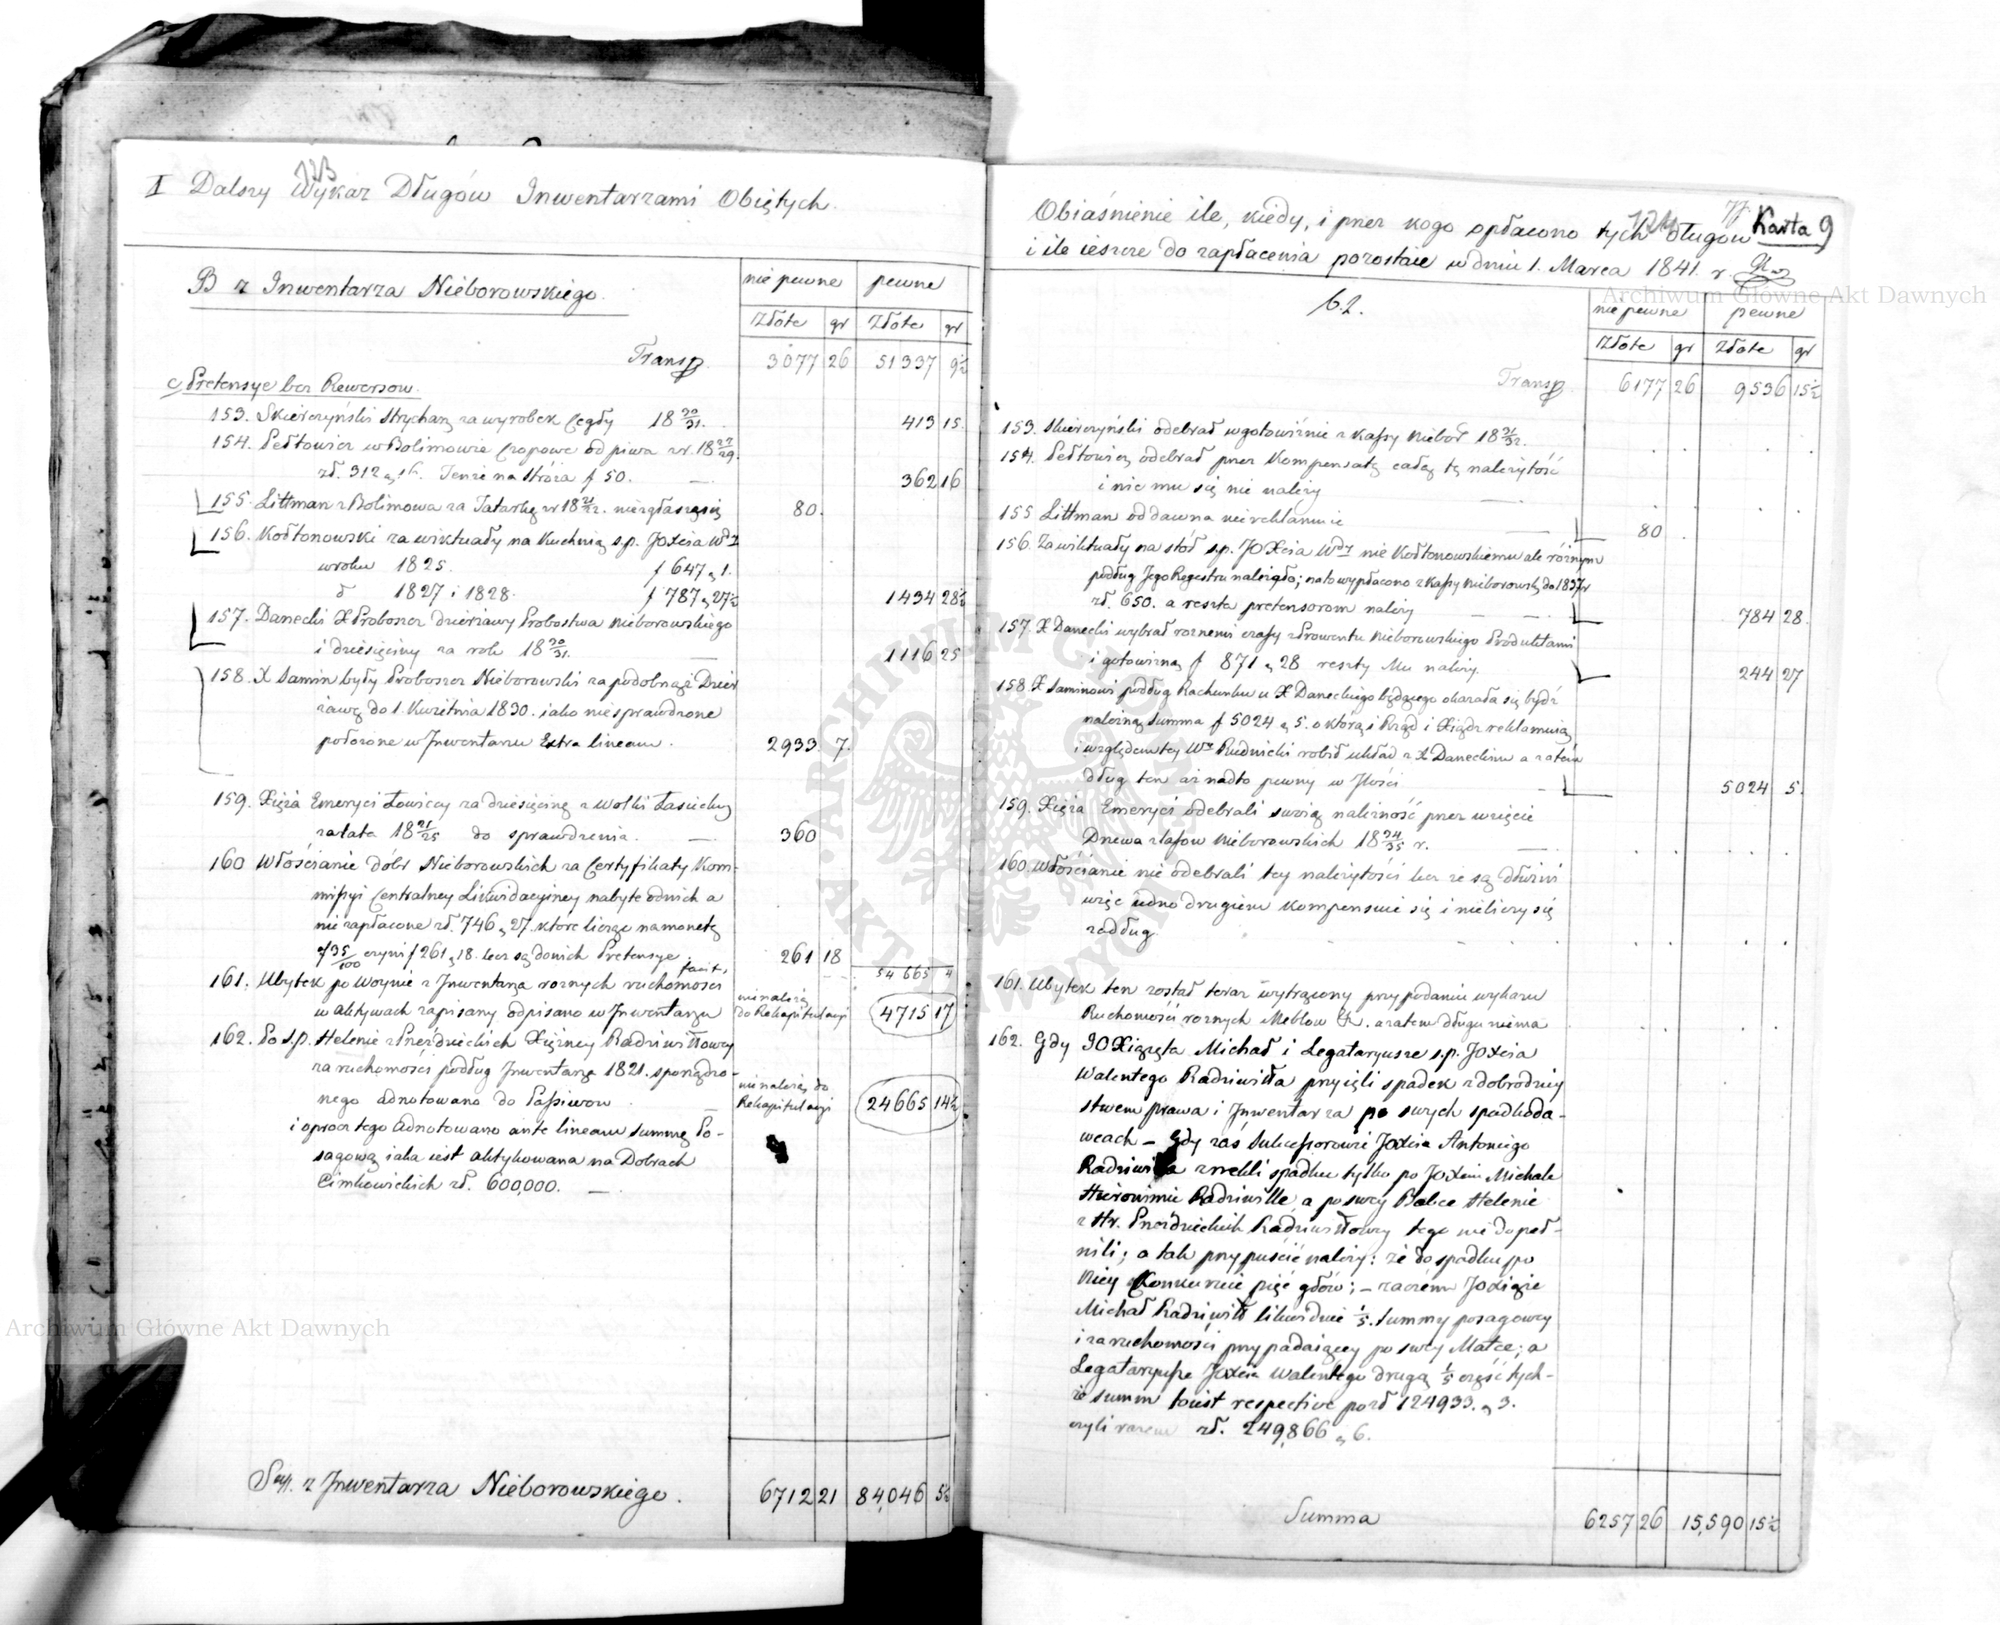 123
I Dalszy Wykaz Długów Inwentarzami Obiętych.
B z Inwentarza Nieborowskiego.
nie pewne pewne
Złote gr Złote gr
Transp. 3077 26 51337 9½
c Pretensye bez Rewersow.
153. Skierczyński Strycharz za wyrobek Cegły 18 30/31. 413 15.
154. Pełtowicz w Bolimowie Czopowe od piwa z r. 18 27/29.
zł. 312 g. 16. Tenże na Stróża f 50. — 362 16
155. Littman z Bolimowa za Tatarkę w 18 21/22. niezgłasza się 80.
156. Kołtonowski za wiktuały na Kuchnią s.p. JOXcia Wdy
w roku 1825. f 647 g 1.
d 1827 i 1828. f 787 g 27½ 1434 28½
157. Danecki X Proboszcz dzierżawy Probostwa Nieborowskiego
i dziesięciny za rok 18 30/31. — 1116 25
158. X Samin były Proboszcz Nieborowski za podobnąż Dzier
żawę do 1. Kwietnia 1830. iako niesprawdzone
położone w Inwentarzu Extra lineam. 2933 7.
159. Xięża Emeryci Łowiccy za dziesięcinę z Wolki Łasieckiey
za lata 18 21/25 do sprawdzenia. — 360
160 Włościanie dóbr Nieborowskich za Certyfikaty Kom-
missyi Centralney Likwidacyiney nabyte od nich a
nie zapłacone zł. 746 g 27. które licząc na monetę
d 35/100 czyni f 261 g 18. lecz są do nich Pretensye. 261 18
facit, 54665 4
161. Ubytek po Woynie z Inwentarza roznych ruchomości
w Aktywach zapisany odpisano w Inwentarzu nie należą do Rekapitulacyi 4715 17
162. Po s.p. Helenie z Przeździeckich Xiężney Radziwiłłowey
za ruchomości podług Inwentarza 1821. sporządzo-
nego adnotowano do Passiwow — nie należą do Rekapitulacyi 24665 14½
i oprocz tego Adnotowano ante lineam summę Po-
sagową iaka iest aktykowana na Dobrach
Cimkowickich zł. 600,000. —
Sum. z Inwentarza Nieborowskiego. 6712 21 84,046 5½
Obiaśnienie ile, kiedy, i przez kogo opłacono tych Długów
124 77. Karta 9
i ile ieszcze do zapłacenia pozostaie w dniu 1. Marca 1841. r.
62.
nie pewne pewne
Złote gr Złote gr
Transp. 6177 26 9536 15½
153. Skierczyński odebrał w gotowiźnie z Kassy Niebor. 18 31/32.
154. Pełtowicz odebrał przez Kompensatę całą tę należytość
i nic mu się nie należy —
155 Littman od dawna nie reklamuie — 80
156. Za wiktuały na stół s.p. JOXcia Wdy nie Kołtonowskiemu ale róźnym
podług Jego Regestru należało; na to wypłacono z Kassy Nieborowsk. do 1837 r
zł. 650. a reszta pretensorom należy — 784 28.
157. X Danecki wybrał roznemi czasy z Prowentu Nieborowskiego Produktami
i gotowizną f 871 g 28 reszty Mu należy. 244 27
158. X Saminowi podług Rachunku u X Daneckiego będącego okazała się bydź
należną Summa f 5024 g 5. o którą i Rząd i Xiądz reklamuią
i względem tey Wny Rudnicki robił układ z X Daneckim a zatem
dług ten aż nadto pewny w Ilości — 5024 5.
159. Xięża Emeryci odebrali swoią należność przez wzięcie
Drzewa z lasow Nieborowskich 18 34/35 r. —
160. Włościanie nie odebrali tey należytości lecz że są dłużni
więc iedno drugiem kompensuie się i nieliczy się
za dług.
161. Ubytek ten został teraz wytrącony przy podaniu wykazu
Ruchomości roznych Meblow &. a zatem długu niema
162. Gdy JOXiążęta Michał i Legataryusze s.p. JOXcia
Walentego Radziwiłła przyięli spadek z dobrodziey
stwem prawa i Inwentarza po swych spadkoda-
wcach — Gdy zaś Sukcessorowie JOXcia Antoniego
Radziwiłła zrzekli spadku tylko po JOXciu Michale
Hieronimie Radziwille, a po swey Babce Helenie
z Hr. Przeździeckich Radziwiłłowey tego nie dopeł-
nili; a tak przypuścić należy: że do spadku po
Niey Konkurruie pięć głów; — zaczém JOXiąże
Michał Radziwiłł likwiduie ⅕. Summy posagowey
i za ruchomości przypadaiącey po swey Matce; a
Legataryusze JOXcia Walentego drugą ⅕ część tych-
że summ to iest respective po zł 124933. g 3.
czyli razem zł. 249,866 g 6.
Summa 6257 26 15,590 15½
Archiwum Główne Akt Dawnych
Archiwum Główne Akt Dawnych
ARCHIWUM GŁÓWNE AKT DAWNYCH